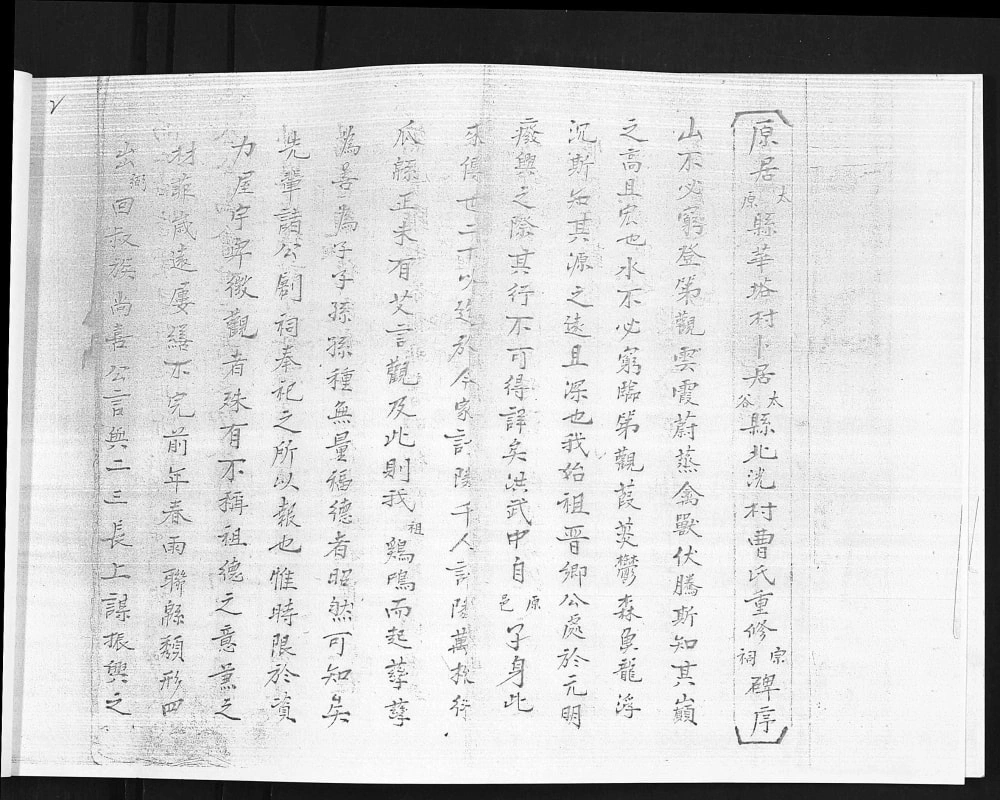 原居太原縣華塔村卜居太谷縣北洸村曹氏重修宗祠碑序
山不必窮登第觀雲霞蔚蒸禽獸伏騰斯知其巔
之高且宏也水不必窮臨第觀葭菼鬱森魚龍浮
沉斯知其源之遠且深也我始祖晉卿公處於元明
癈興之際其行不可得詳矣洪武中自原邑孑身此
來傳世二下以迄於今家計陸千人計陸萬
瓜緜正未有艾言觀及此則我祖鷄鳴而起孳孳
為善為子子孫孫種無量福德者昭然可知矣
先輩諸公剏祠奉祀之所以報也惟時限於資
力屋宇卑微觀者殊有不稱祖德之意兼之
材菲歲遠屢繕不完前年春雨聯緜頽形四
出嗣回叔族尚喜公言與二三長上謀振興之